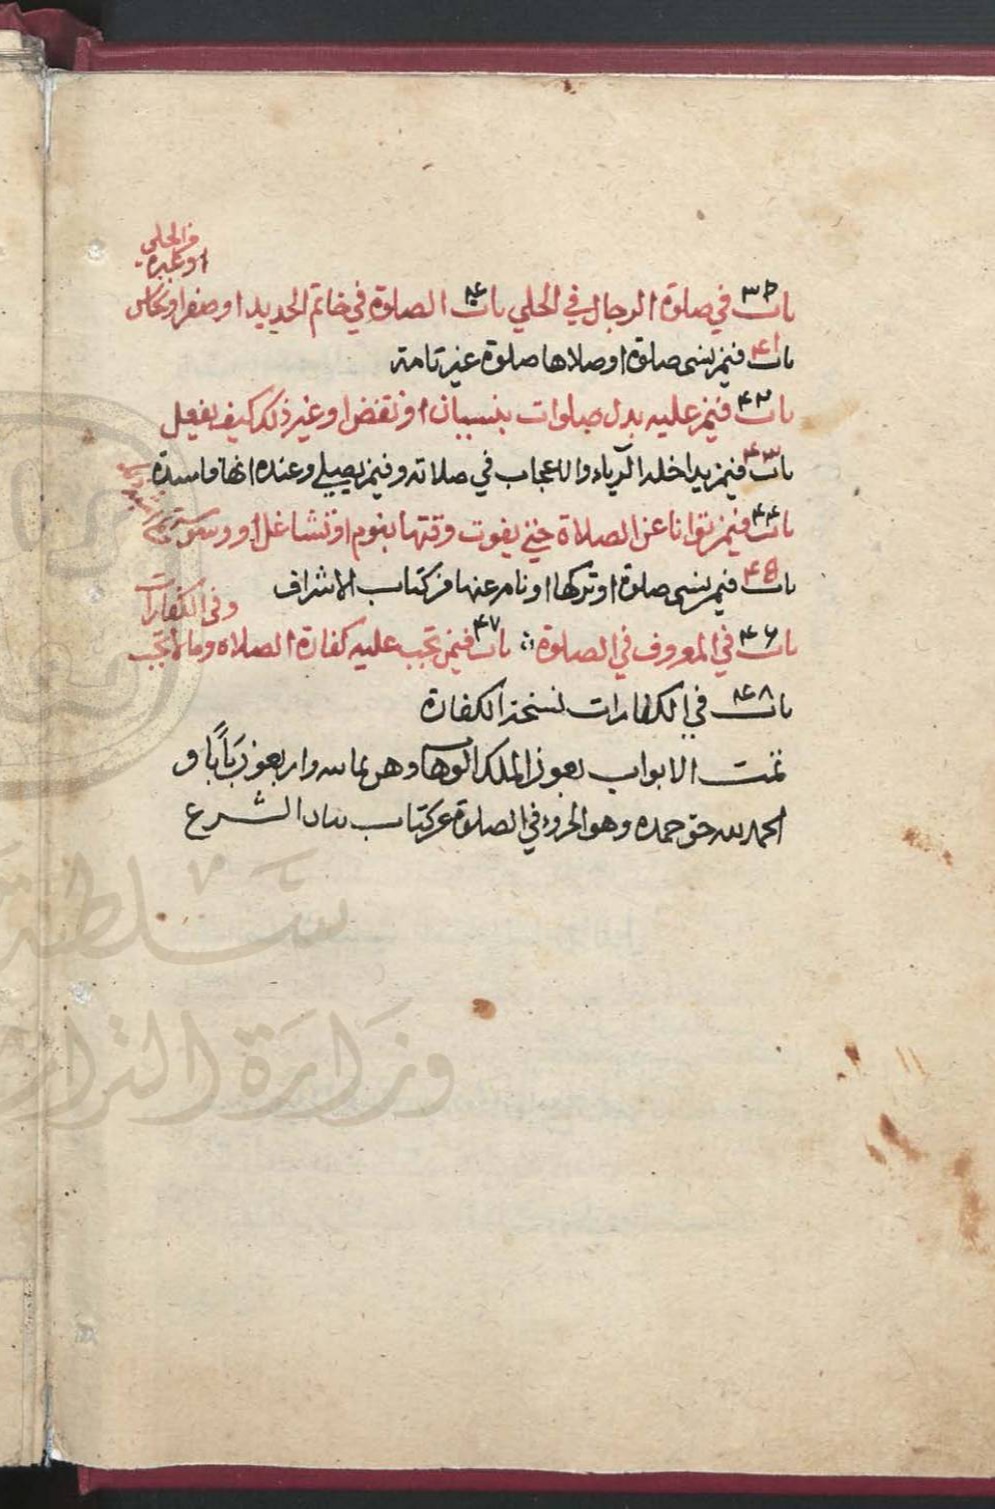 في الحلي
او غيره
باب ٣٩ في صلوة الرجال في الحلي باب ٤٠ الصلوة في خاتم الحديد او صفر او نحاس
باب ٤١ فيمن نسى صلوة او صلاها صلوة غير تامة
باب ٤٢ فيمن عليه بدل صلوات بنسيان او نقض او غير ذلك كيف يفعل
باب ٤٣ فيمن يداخله الرياء والاعجاب في صلاته وفيمن يصلي وعنده انها فاسدة
باب ٤٤ فيمن توانا عن الصلاة حتى يفوت وقتها بنوم او تشاغل او
باب ٤٥ فيمن نسى صلوة او تركها او نام عنها من كتاب الاشراف
وفي الكفارات
باب ٤٦ في المعروف في الصلوة باب ٤٧ فيمن تجب عليه كفارة الصلاه وما لا تجب
باب ٤٨ في الكفارات نسخة الكفارة
تمت الابواب بعون الملك الوهاب وهن ثمانيه واربعون بَابًا و
الحمد لله حق حمده وهو الجزء في الصلوة من كتاب بيان الشرع
سلطنة
وزارة التراث